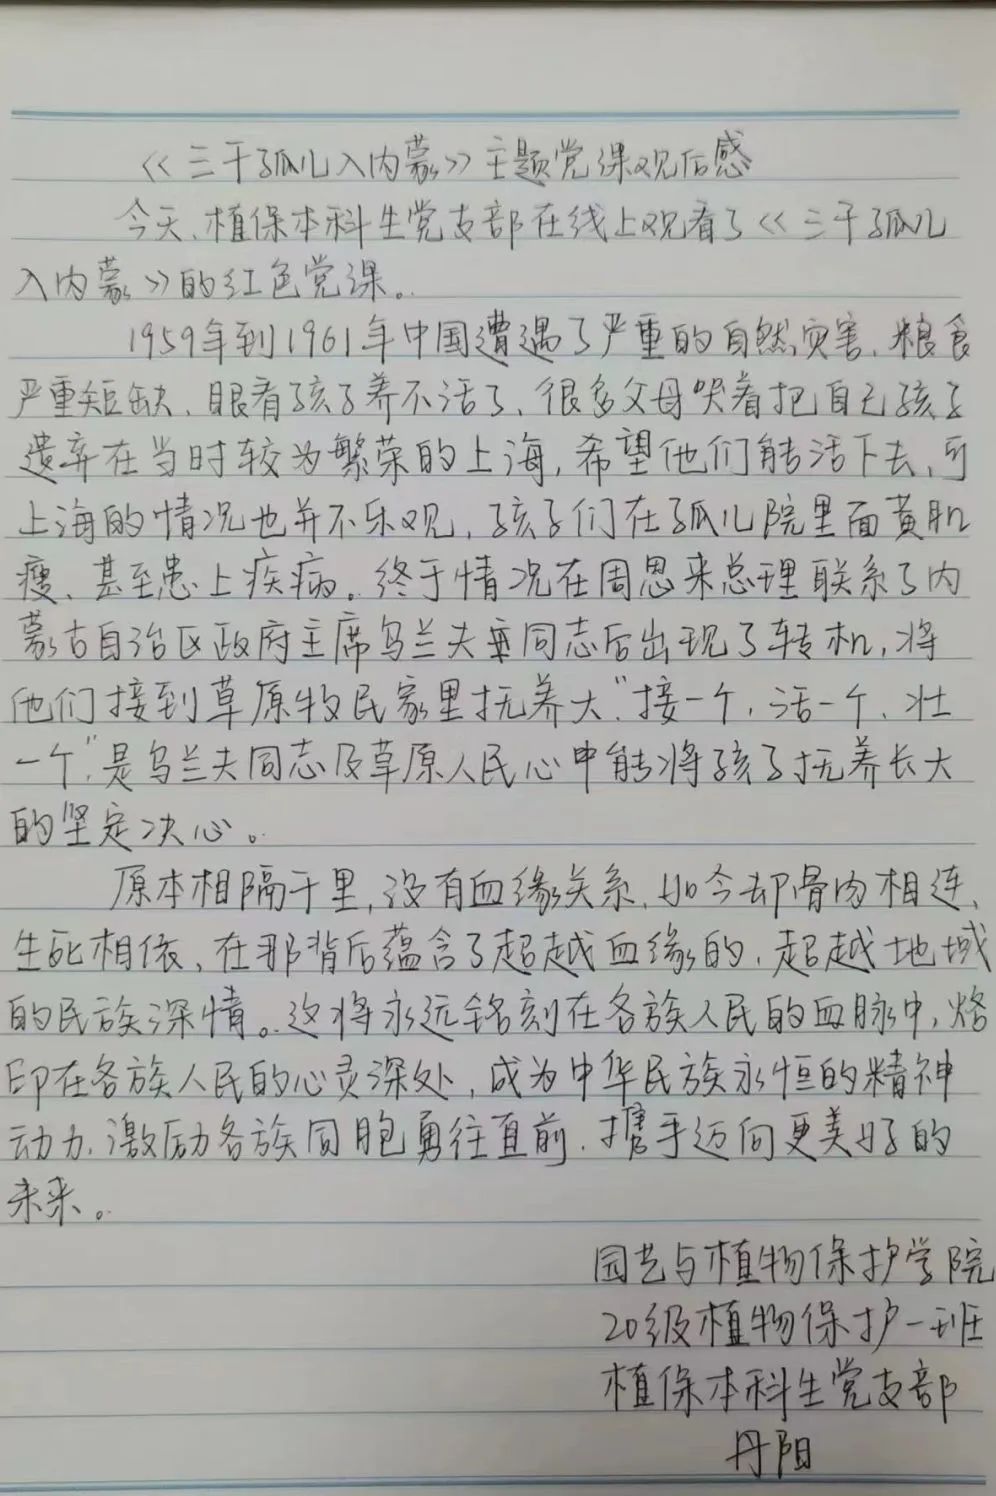 《三千孤儿入内蒙》主题党课观后感
今天，植保本科生党支部在线上观看了《三千孤儿
入内蒙》的红色党课。
1959年到1961年中国遭遇了严重的自然灾害，粮食
严重短缺，眼看孩子养不活了，很多父母哭着把自己孩子
遗弃在当时较为繁荣的上海，希望他们能活下去，可
上海的情况也并不乐观，孩子们在孤儿院里面黄肌
瘦，甚至患上疾病。终于情况在周恩来总理联系了内
蒙古自治区政府主席乌兰夫同志后出现了转机，将
他们接到草原牧民家里抚养大，"接一个，活一个，壮
一个"，是乌兰夫同志及草原人民心中能将孩子抚养长大
的坚定决心。
原本相隔千里，没有血缘关系，如今却骨肉相连，
生死相依，在那背后蕴含了超越血缘的，超越地域
的民族深情。这将永远铭刻在各族人民的血脉中，烙
印在各族人民的心灵深处，成为中华民族永恒的精神
动力，激励各族同胞勇往直前，携手迈向更美好的
未来。
园艺与植物保护学院
20级植物保护一班
植保本科生党支部
丹阳